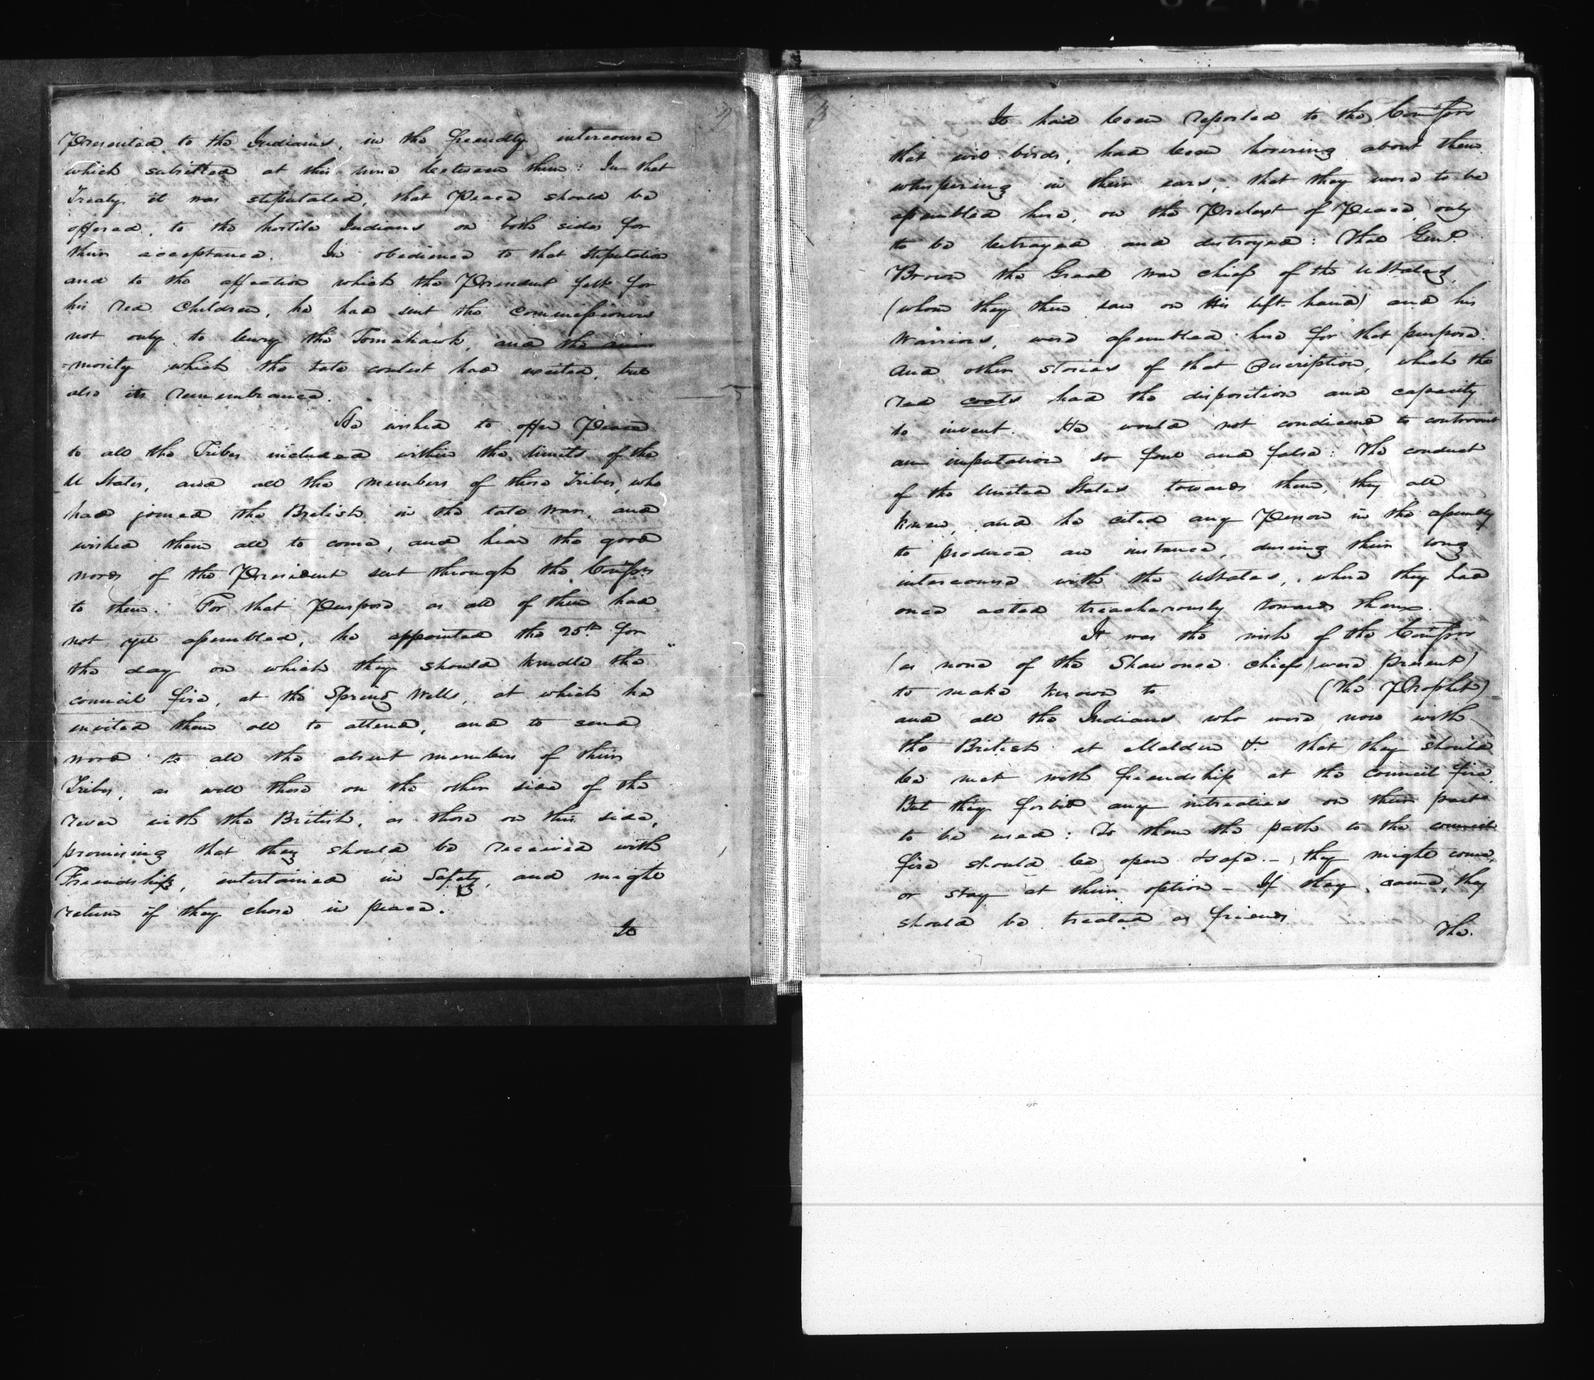 Presented to the Indians, in the friendly intercourse
which subsisted at this time between them: In that
Treaty it was stipulated, that Peace should be
offered, to the hostile Indians on both sides for
their acceptance. In obedience to that stipulation
and to the affection which the President felt for
his red Children, he had sent the commissioners
not only to bury the Tomahawk, and the ani
-mosity which the late contest had excited, but
also its remembrance.
He wished to offer Peace
to all the Tribes included within the limits of the
U States, and all the members of those Tribes, who
had joined the British in the late War, and
wished them all to come, and hear the good
words of the President sent through the Comssrs
to them. For that Purpose as all of them had
not yet assembled, he appointed the 25th for
the day on which they should kindle the
council fire, at the Spring Wells, at which he
invited them all to attend, and to send
word to all the absent members of their
Tribes, as well those on the other side of the
river with the British, as those on this side,
promising that they should be received with
Friendship, entertained in Safety, and might
return if they chose in peace.
It
It had been reported to the Comssrs
that bird birds, had been hovering about them
whispering in their ears, that they were to be
assembled here, on the Pretext of Peace, only
to be betrayed and destroyed: That Genl.
Brown the Great War chief of the UStates,
(whom they then saw on his left hand) and his
Warriors, were assembled here for that purpose.
And other stories of that discription, which the
red coats had the disposition and capacity
to invent. He would not condicend to controvert
an imputation so foul and false: The conduct
of the United States towards them, they all
knew, and he cited any Person in the assembly
to produce an instance, during their long
intercourse with the UStates, where they had
once acted treacherously towards them.
It was the wish of the Comssrs
(as none of the Shawonee chiefs were present)
to make known to (the Prophet)
and all the Indians who were now with
the British at Malden &. that they should
be met with friendship at the council fire.
But they forbid any intreaties on their part
to be used: To them the path to the council
fire should be open & safe—, they might come,
or stay at their option — If they came, they
should be treated as friends
The.